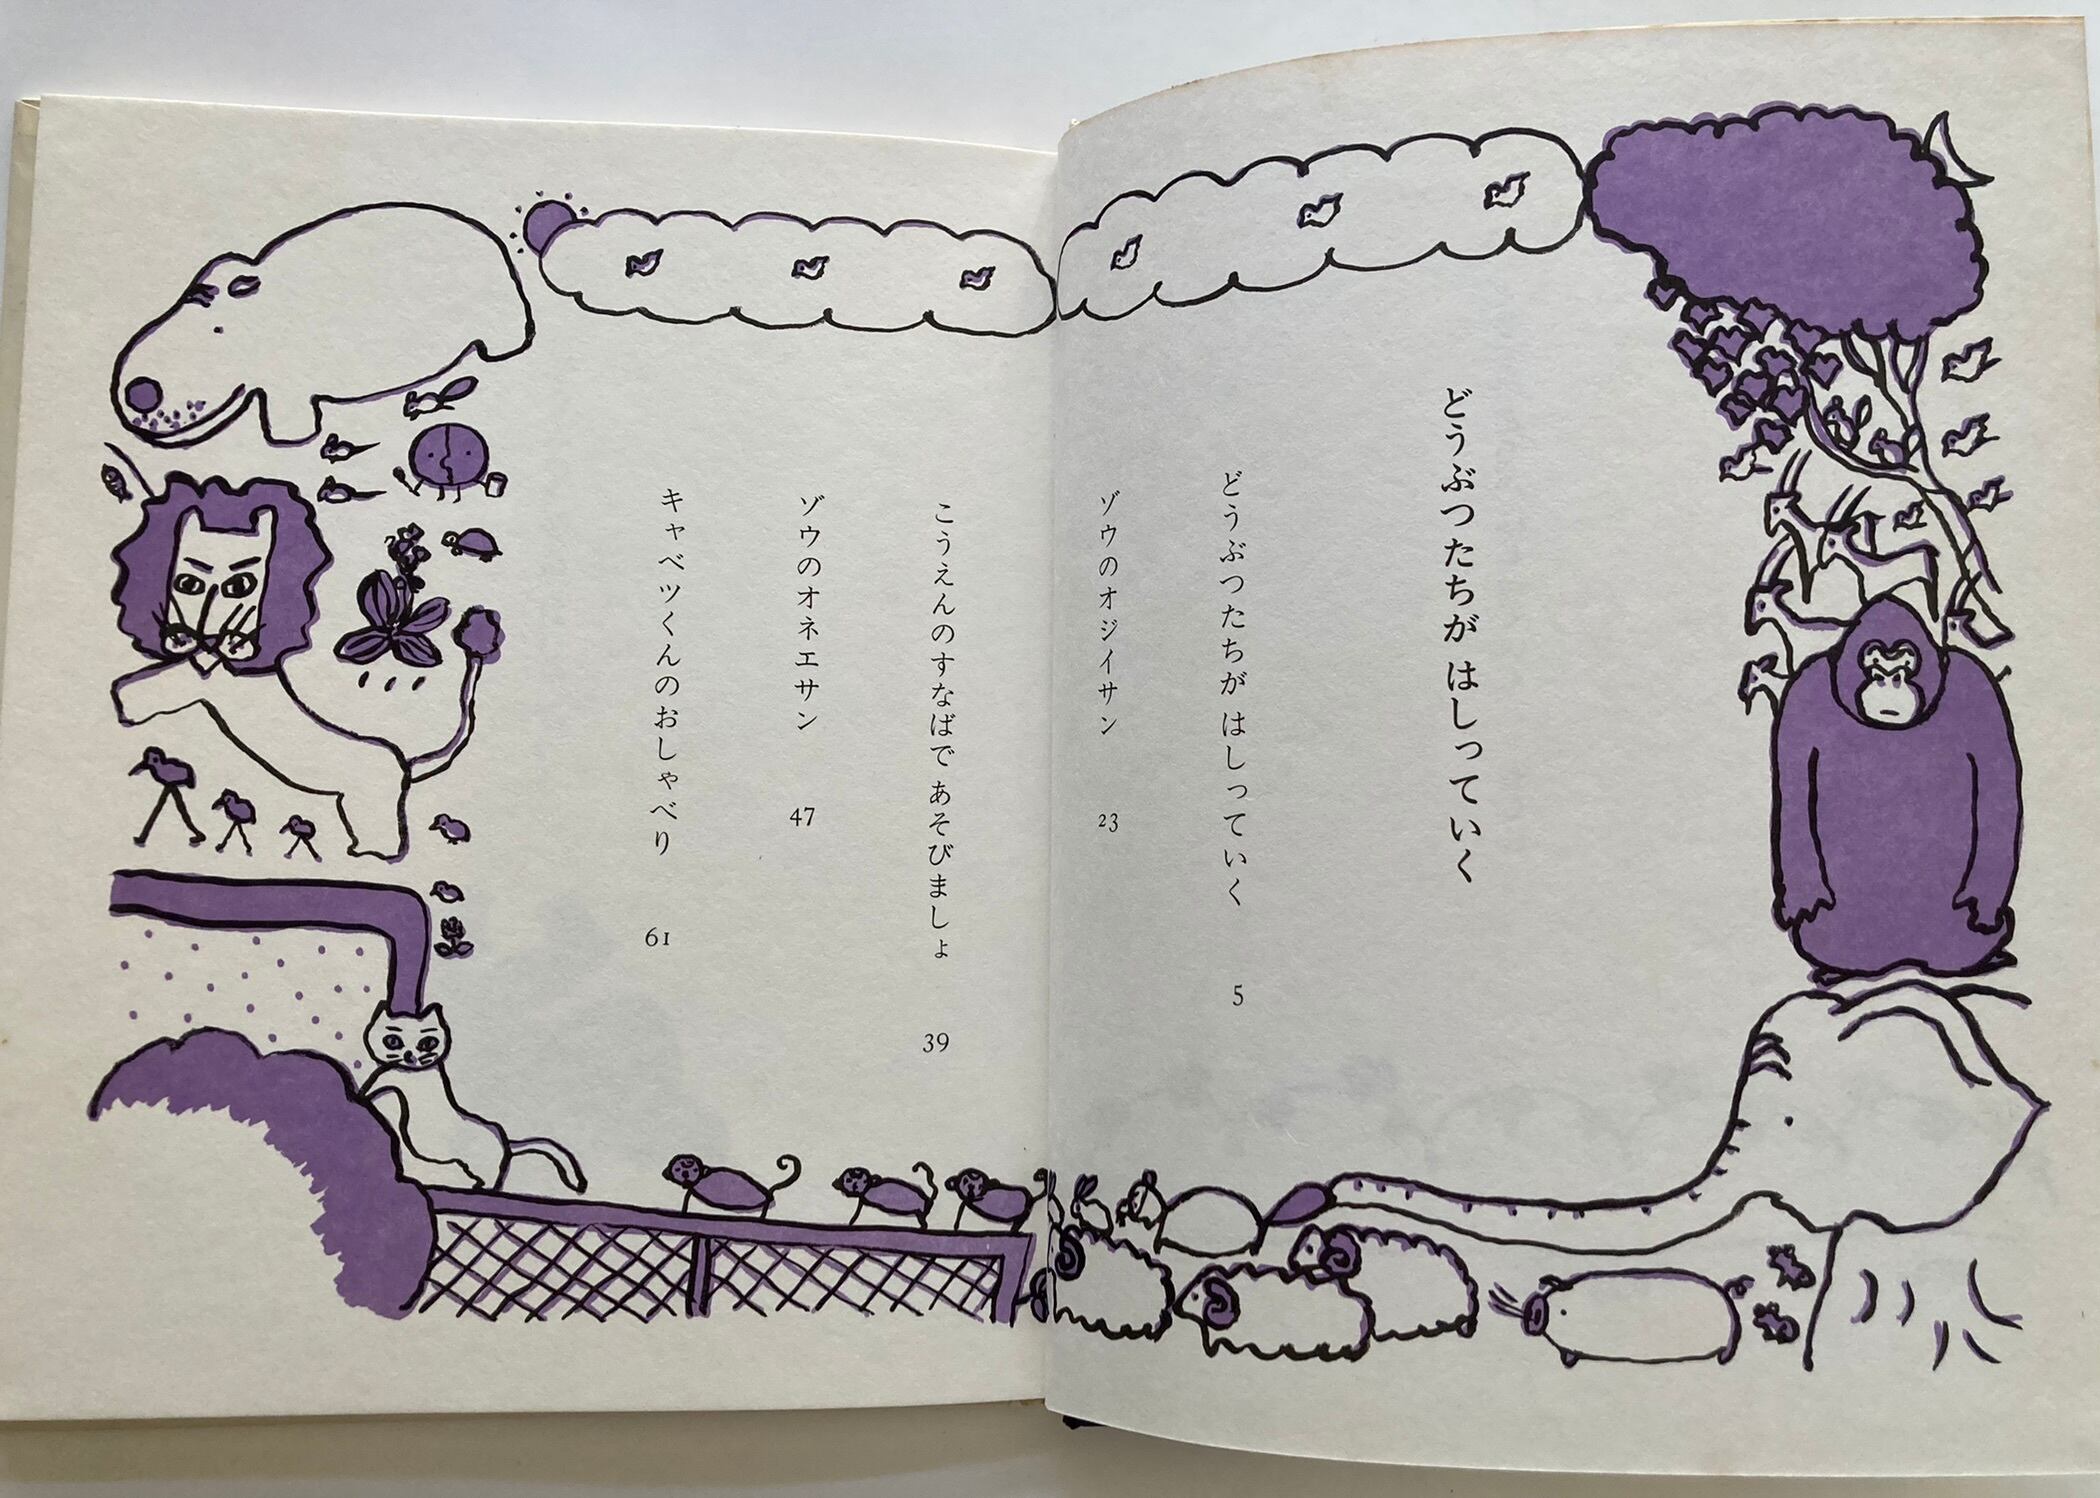 どうぶつたちが はしっていく
どうぶつたちが はしっていく 5
ゾウのオジイサン 23
こうえんのすなばで あそびましょ 39
ゾウのオネエサン 47
キャベツくんのおしゃべり 61